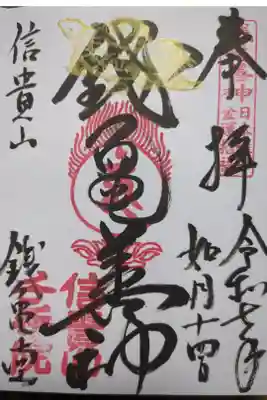 奉拝
令和七年
如月十四日
錢亀善神
信貴山
錢亀堂
信貴山